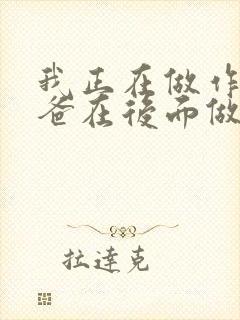 我正在做作
爸在後面做
拉達克